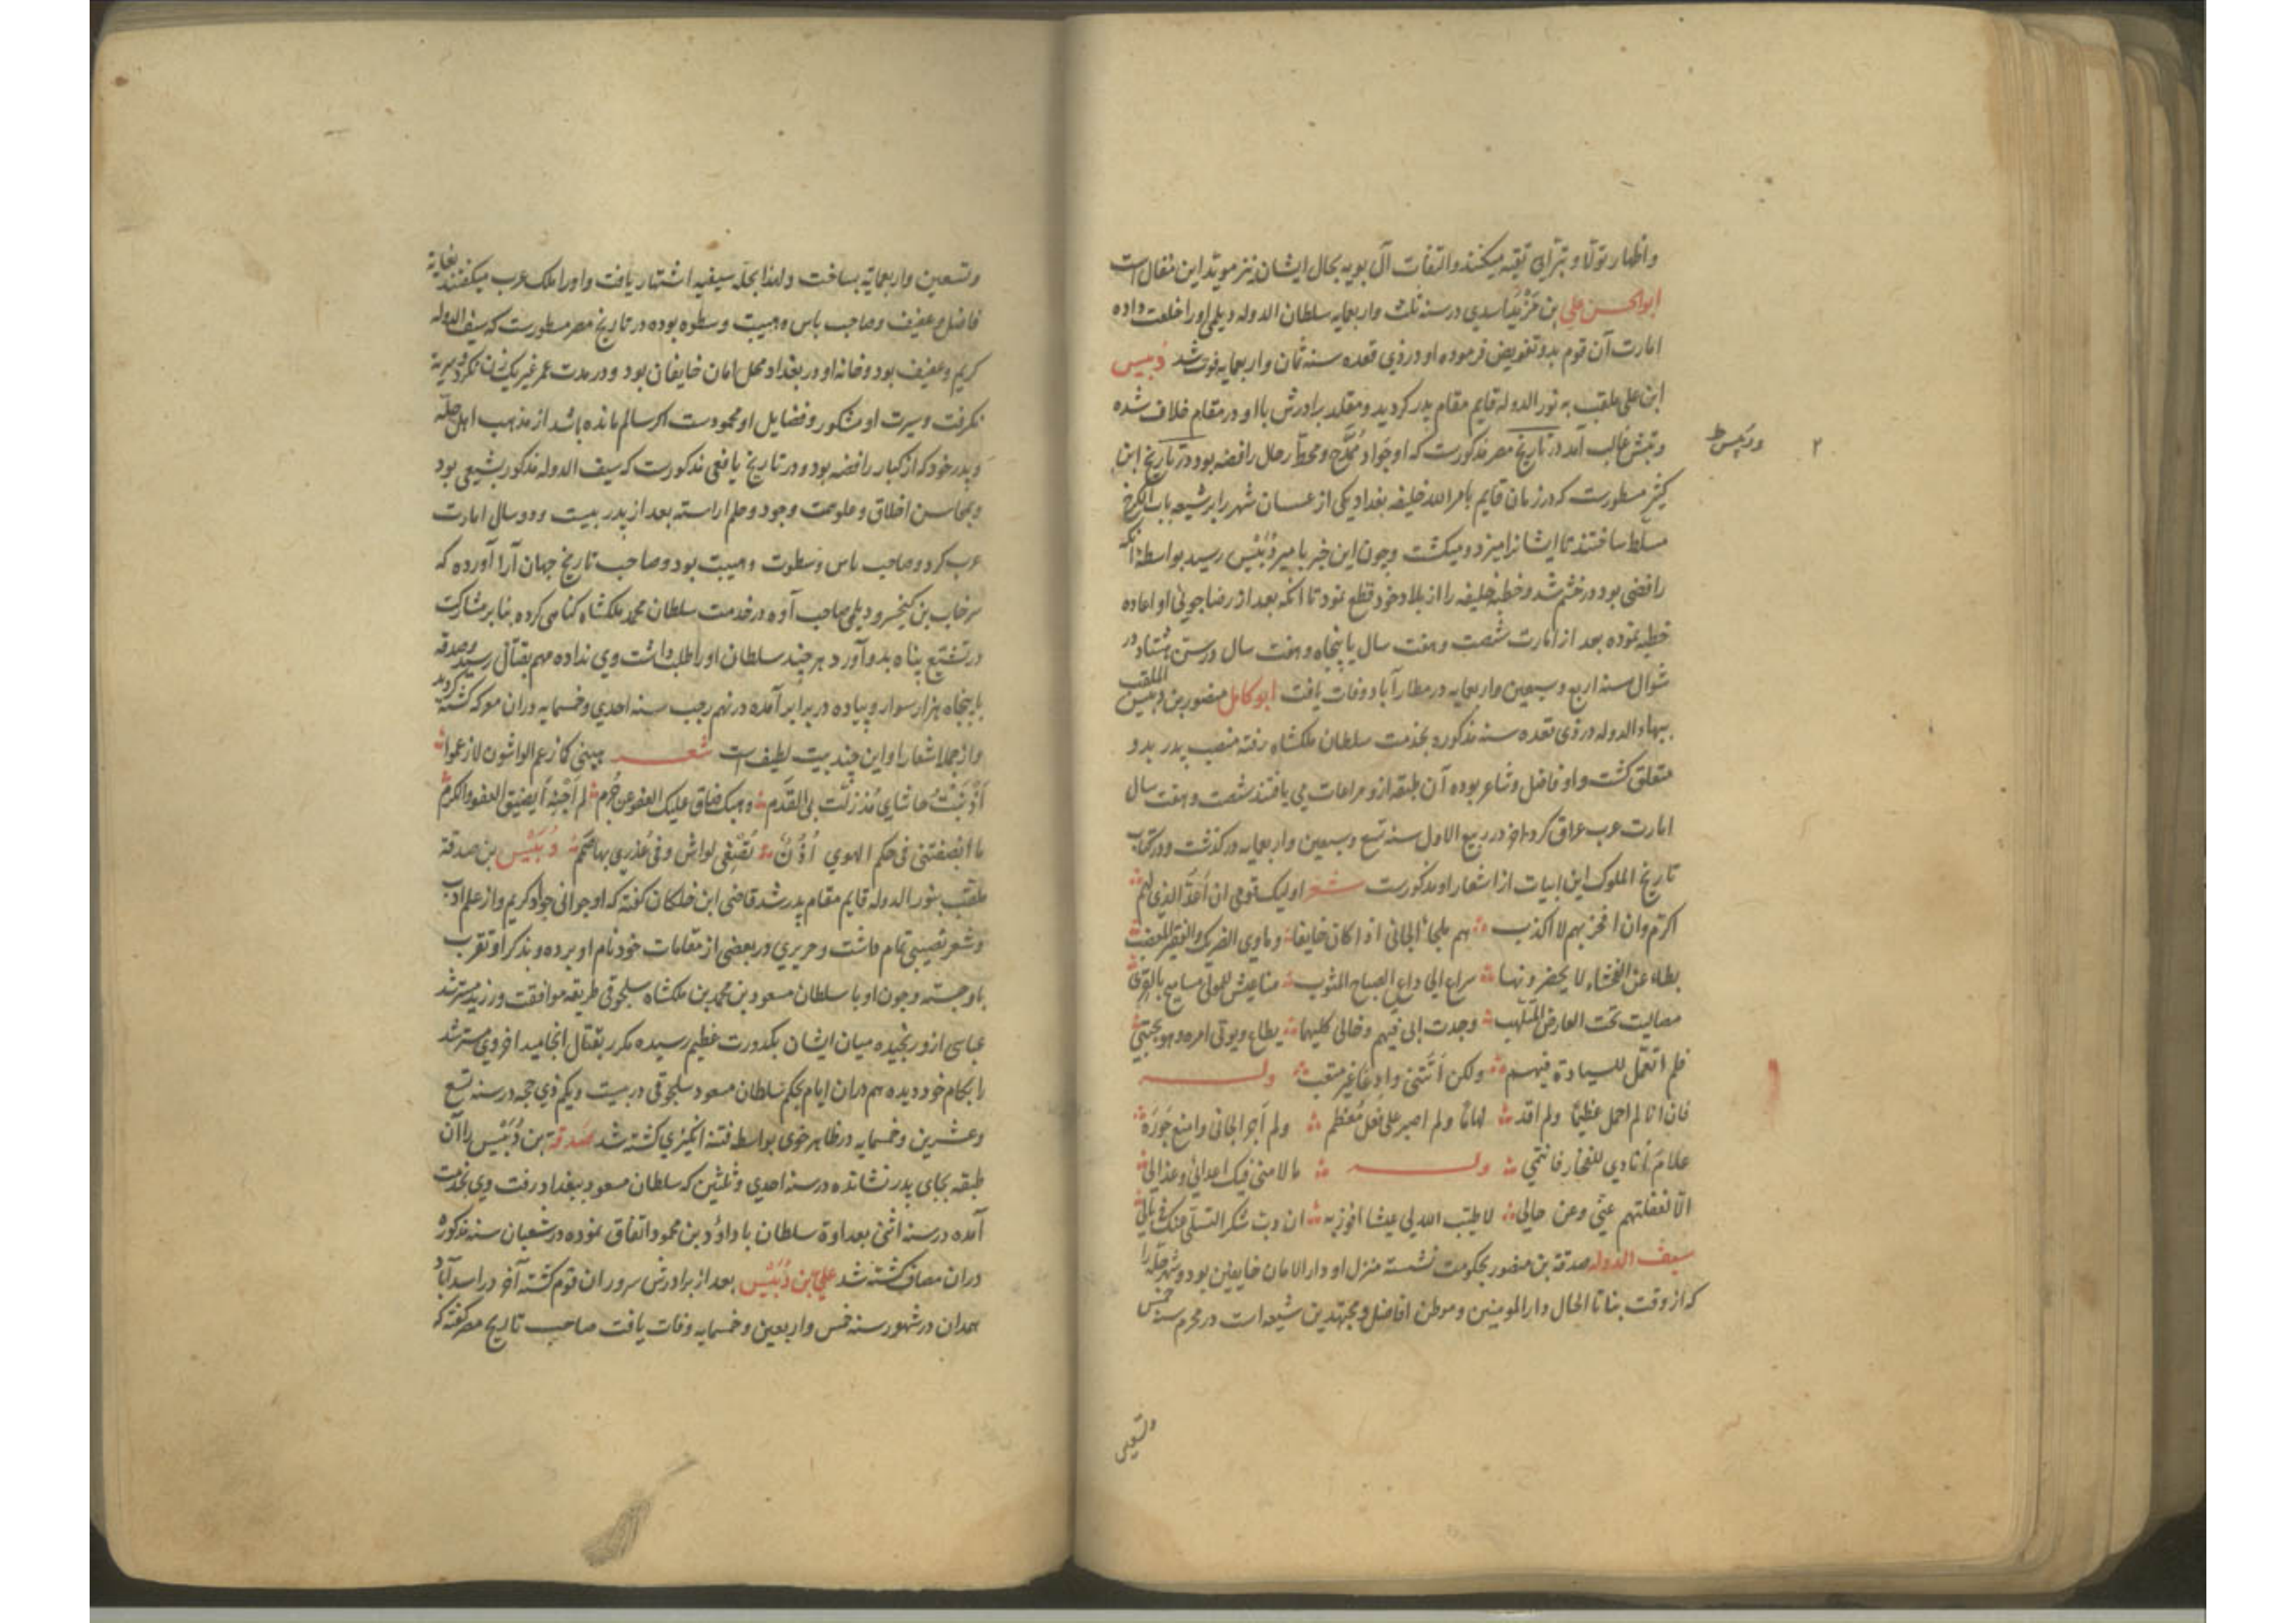 واظهار تولّا و تبرّای تقیه میکنند و التفات آل بویه بحال ایشان نیز موید این مقال است
ابوالحسن علی بن مَزْیَد اسدی در سنه ثلث و اربعمایه سلطان الدوله دیلمی او را خلعت داده
امارت آن قوم بدو تفویض فرموده او در ذی قعده سنه ثمان و اربعمایه فوت شد دُبیس
ابن علی ملقب به نور الدوله قایم مقام پدر کردید و مقلد برادرش با او در مقام خلاف شده
دبیس غالب آمد در تاریخ مصر مذکورست که او جَواد مُمَدَّح و محطّ رحال رافضه بود در تاریخ ابن
کثیر مسطورست که در زمان قایم بامر الله خلیفه بغداد یکی از عسسان شهر را بر شیعه باب الکرخ
مسلّط ساختند تا ایشانرا میزد و میکشت و چون این خبر بامیر دُبَیْس رسید بواسطه آنکه
رافضی بود در خشم شد و خطبه خلیفه را از بلاد خود قطع نمود تا آنکه بعد از رضا جوئی او اعاده
خطبه نموده بعد از امارت شصت و هفت سال یا پنجاه و هفت سال در سن هشتاد در
شوال سنه اربع و سبعین و اربعمایه در مطار آباد وفات یافت ابو کامل منصور بن دبیس الملقب
ببهاء الدوله در ذی قعده سنه مذکوره بخدمت سلطان ملکشاه رفته منصب پدر بدو
متعلق کشت و او فاضل و شاعر بوده آن طبقه ازو مراعات می یافتند شصت و هفت سال
امارت عرب عراق کرد آخر در ربیع الاول سنه تسع و سبعین و اربعمایه درکذشت و در کتاب
تاریخ الملوک این ابیات از اشعار او مذکورست شعر اولیک قومی ان اَعَدّ الذی لهم
اکرّم وان افخر بهم لا اکذب هم ملجاء الجانی اذا کان خایفا و ماوی الضریک و الفقیر المعصب
بطاء عن الفحشاء لا یحضرونها سراع الی داعی الصباح المثوب مناعیش للمولی مسامیح بالقری
مصالیت تحت العارض المتلهب وجدت ابی فیهم و خالی کلیهما یطاع و یوتی امره و هو مجتبی
فلم اتعمّل للسیادة فیهم ولکن اَتَتنی وادِعًا غیر متعب وله
فان انا لم احمل عظیمًا ولم اقد لهامًا ولم اصبر علی فعل مُعظم ولم اَجر الجانی و امنع جَورَهُ
علامَ اُنادی للفخار فانتمی وله ما لامنی فیک اعدائی و عذالی
الّا لغفلتهم عنّی وعن حالی لا طیّب الله لی عیشا افوز به ان دبّ سکر التسلّی عنک فی بالی
سیف الدوله صدقه بن منصور بحکومت نشسته منزل او دار الامان خایفین بود و شهر حله را
که از وقت بنا تا الحال دار المومنین و موطن افاضل و مجتهدین شیعه است در محرم سنه خمس
وتسعین
٢ ودبیس ط
وتسعین و اربعمایه بساخت و لهذا بحله سیفیه اشتهار یافت و او را ملک عرب میکفتند بغایة
فاضل و عفیف و صاحب باس و هیبت و سطوه بوده در تاریخ مصر مسطورست که سیف الدوله
کریم و عفیف بود و خانه او در بغداد محل امان خایفان بود و در مدت عمر غیر یک زن نکرد و سریه
نکرفت و سیرت او مشکور و فضایل او محمودست اکر سالم مانده باشد از مذهب اهل حله
و پدر خود که از کبار رافضه بود و در تاریخ یافعی مذکورست که سیف الدوله مذکور شیعی بود
و بمحاسن اخلاق و علوهمت و جود و حلم اراسته بعد از پدر بیست و دو سال امارت
عرب کرد و صاحب باس و سطوت و هیبت بود و صاحب تاریخ جهان آرا آورده که
سرخاب بن کیخسرو دیلمی صاحب آوه در خدمت سلطان محمد ملکشاه کناهی کرده بنا بر مشارکت
در تشیّع پناه بدو آورد هر چند سلطان او را طلب داشت وی نداده مهم بقتال رسید و صدقه
با پنجاه هزار سوار و پیاده در برابر آمده در نهم رجب سنه احدی و خمسمایه در ان معرکه کشته کردید
و از جمله اشعار او این چند بیت لطیف است شعر هبنی کما زعم الواشون لا زعموا
اَذنَبْتُ حاشای مُذ زلّت بی القَدم وهبک ضاق علیک العفو عن جُرم لم اَجنِهِ اَیضیق العفو و الکرم
ما انصفتنی فی حکم الهوی اُذُنٌ تُصْغِی لواش و فی عُذری بها صَمَم دُبَیْس بن صدقة
ملقب بنور الدوله قایم مقام پدر شد قاضی ابن خلکان کفته که او جوانی جواد کریم و از علم ادب
و شعر نصیبی تمام داشت و حریری در بعضی از مقامات خود نام او برده و بذکر او تقرب
باو جسته و چون او با سلطان مسعود بن محمد بن ملکشاه سلجوقی طریقه موافقت ورزید مسترشد
عباسی ازو رنجیده میان ایشان بکدورت عظیم رسیده مکرر بقتال انجامید اخر وی مسترشد
را بکام خود دیده هم دران ایام بحکم سلطان مسعود سلجوقی در بیست و یکم ذی حجه در سنه تسع
و عشرین و خمسمایه در ظاهر خوی بواسطه فتنه انکیزی کشته شد صَدقة بن دُبَیْس را آن
طبقه بجای پدر نشانده در سنه احدی و ثلثین که سلطان مسعود ببغداد رفت وی بخدمت
آمده در سنه اثنی بعداوة سلطان با داؤد بن محمود اتفاق نموده در شعبان سنه مذکوره
دران مصاف کشته شد علیّ بن دُبَیْس بعد از برادرش سرور ان قوم کشته آخر در اسد آباد
همدان در شهور سنه خمس و اربعین و خمسمایه وفات یافت صاحب تاریخ مصر کفته که